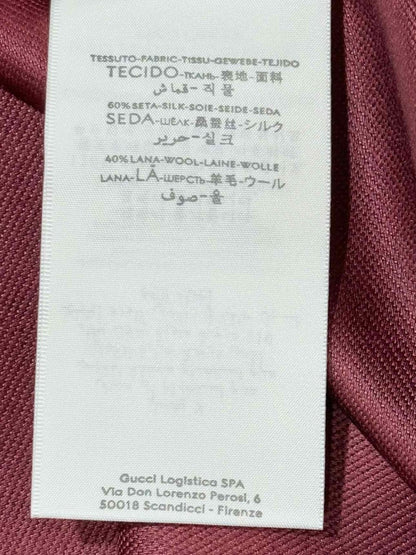 TESSUTO-FABRIC-TISSU-GEWEBE-TEJIDO
TECIDO-ТКАНЬ-表地-面料
직물-قماش
60% SETA-SILK-SOIE-SEIDE-SEDA
SEDA-ШЕЛК-桑蚕丝-シルク
실크-حرير
40% LANA-WOOL-LAINE-WOLLE
LANA-LÃ-ШЕРСТЬ-羊毛-ウール
울-صوف
Gucci Logistica SPA
Via Don Lorenzo Perosi, 6
50018 Scandicci - Firenze